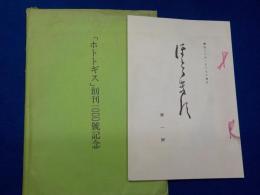 「ホトトギス」創刊一〇〇〇號記念
ほとゝぎす
第一號